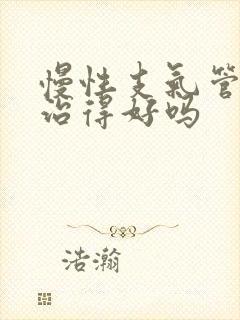 慢性支气管
治得好吗
浩瀚